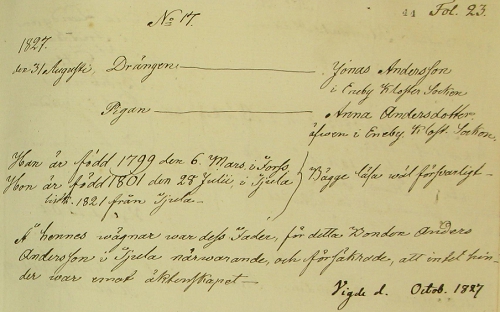 No 17.
44 Fol. 23.
1827.
den 31 Augusti, Drängen — Jonas Andersson
i Eneby Kloster Socken
Pigan — Anna Andersdotter,
äfwen i Eneby Klost. Socken,
Han är född 1799 den 6. Mars, i
Hon är född 1801 den 28 Julii, i Tjula
1821 från Tjula
Bägge läsa wäl försvarligt
Å hennes wägnar war dess Fader, för detta Bonden Anders
Andersson i Tjula närwarande, och försäkrade, att intet hin-
der war emot äktenskapet —
Vigde d. Octob. 1827